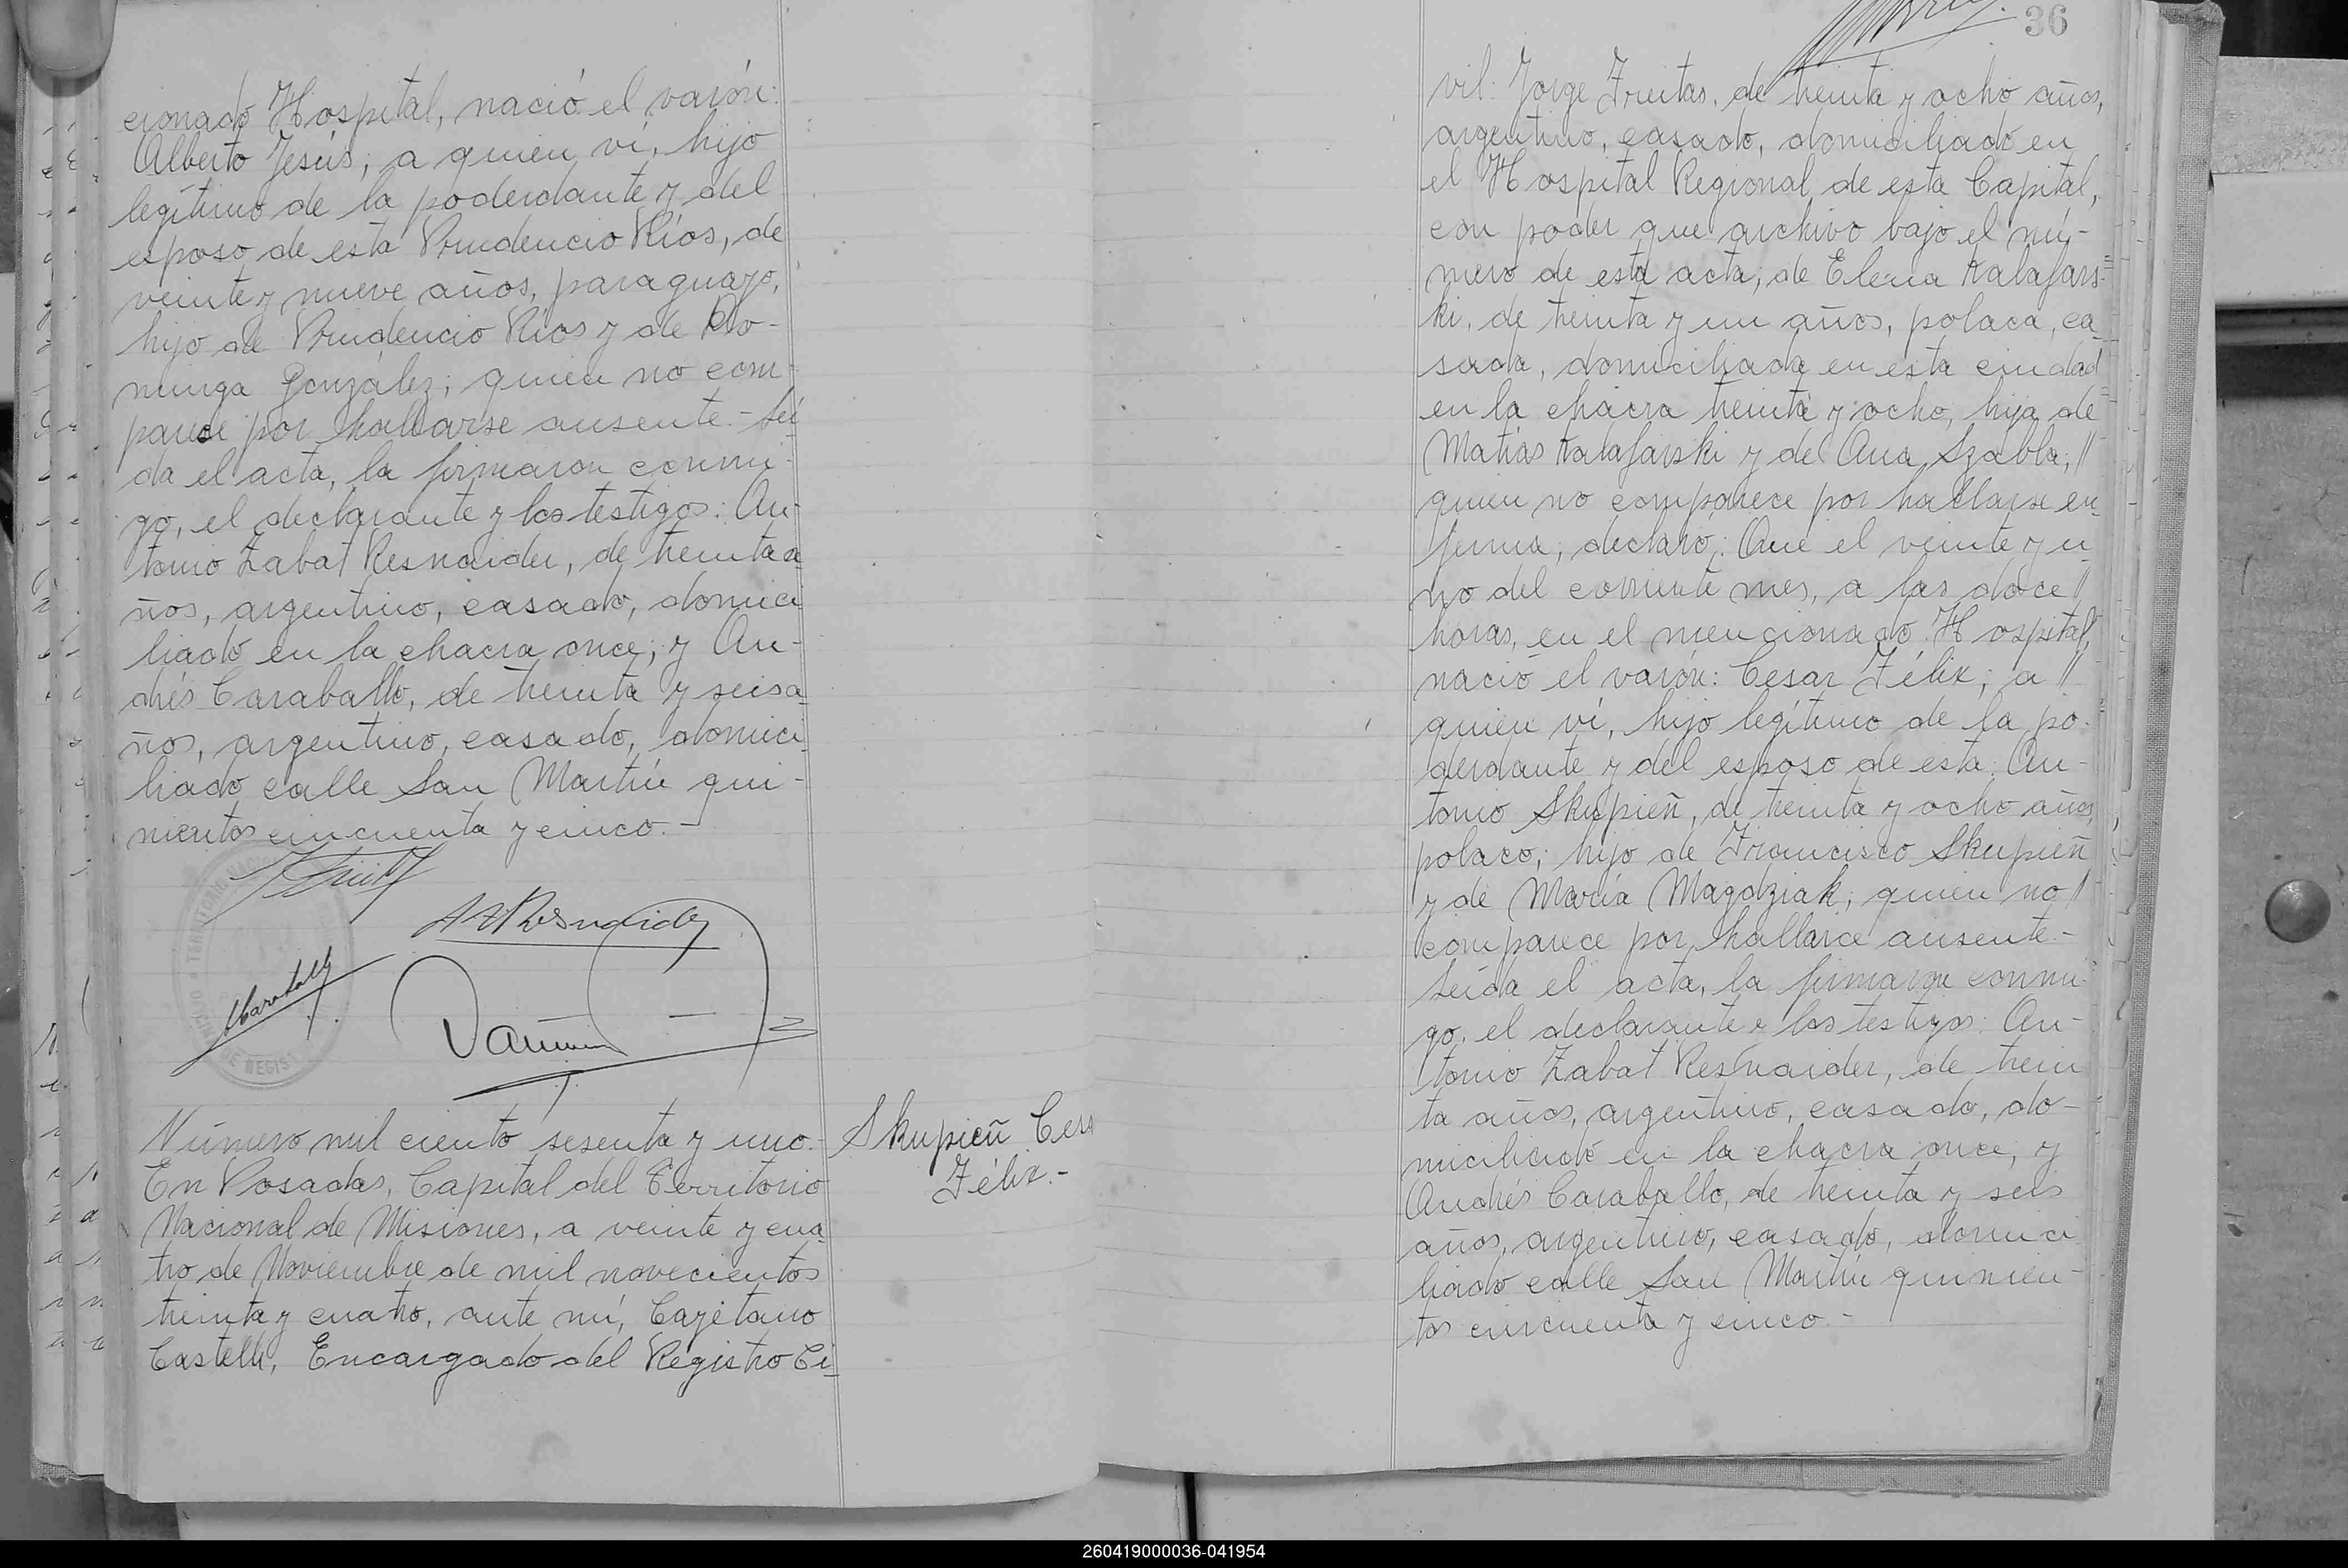 cionado Hospital, nació el varón:
Alberto Jesús; a quien ví, hijo
legítimo de la poderdante y del
esposo de esta Prudencio Ríos, de
veinte y nueve años, paraguayo,
hijo de Prudencio Ríos y de Do-
minga González; quien no com-
parece por hallarse ausente.- Leí-
da el acta, la firmaron conmi-
go, el declarante y los testigos: An-
tonio Zabat Resnaider, de treinta a-
ños, argentino, casado, domici-
liado en la chacra once; y An-
drés Caraballo, de treinta y seis a-
ños, argentino, casado, domici-
liado calle San Martín qui-
nientos cincuenta y cinco.-
AZResnaider
Número mil ciento sesenta y uno.-
En Posadas, Capital del Territorio
Nacional de Misiones, a veinte y cua-
tro de Noviembre de mil novecientos
treinta y cuatro, ante mí, Cayetano
Castelli, Encargado del Registro Ci-
Skupień Cesa
Félix.-
36
vil: Jorge Freitas, de treinta y ocho años,
argentino, casado, domiciliado en
el Hospital Regional de esta Capital,
con poder que archivo bajo el nú-
mero de esta acta; de Elena Kalafars-
ki, de treinta y un años, polaca, ca-
sada, domiciliada en esta ciudad
en la chacra treinta y ocho, hija de
Matías Kalafarski y de Ana Szabla; //
quien no comparece por hallarse en-
ferma; declaró: Que el veinte y u-
no del corriente mes, a las doce //
horas, en el mencionado Hospital,
nació el varón: Cesar Félix; a //
quien ví, hijo legítimo de la po-
derdante y del esposo de esta: An-
tonio Skupień, de treinta y ocho años,
polaco; hijo de Francisco Skupień
y de María Magdziak; quien no /
comparece por hallarce ausente.-
Leída el acta, la firmaron conmi-
go, el declarante y los testigos: An-
tonio Zabat Resnaider, de trein
ta años, argentino, casado, do-
miciliado en la chacra once; y
Andrés Caraballo, de treinta y seis
años, argentino, casado, domici
liado calle San Martín quinien-
tos cincuenta y cinco.-
260419000036-041954